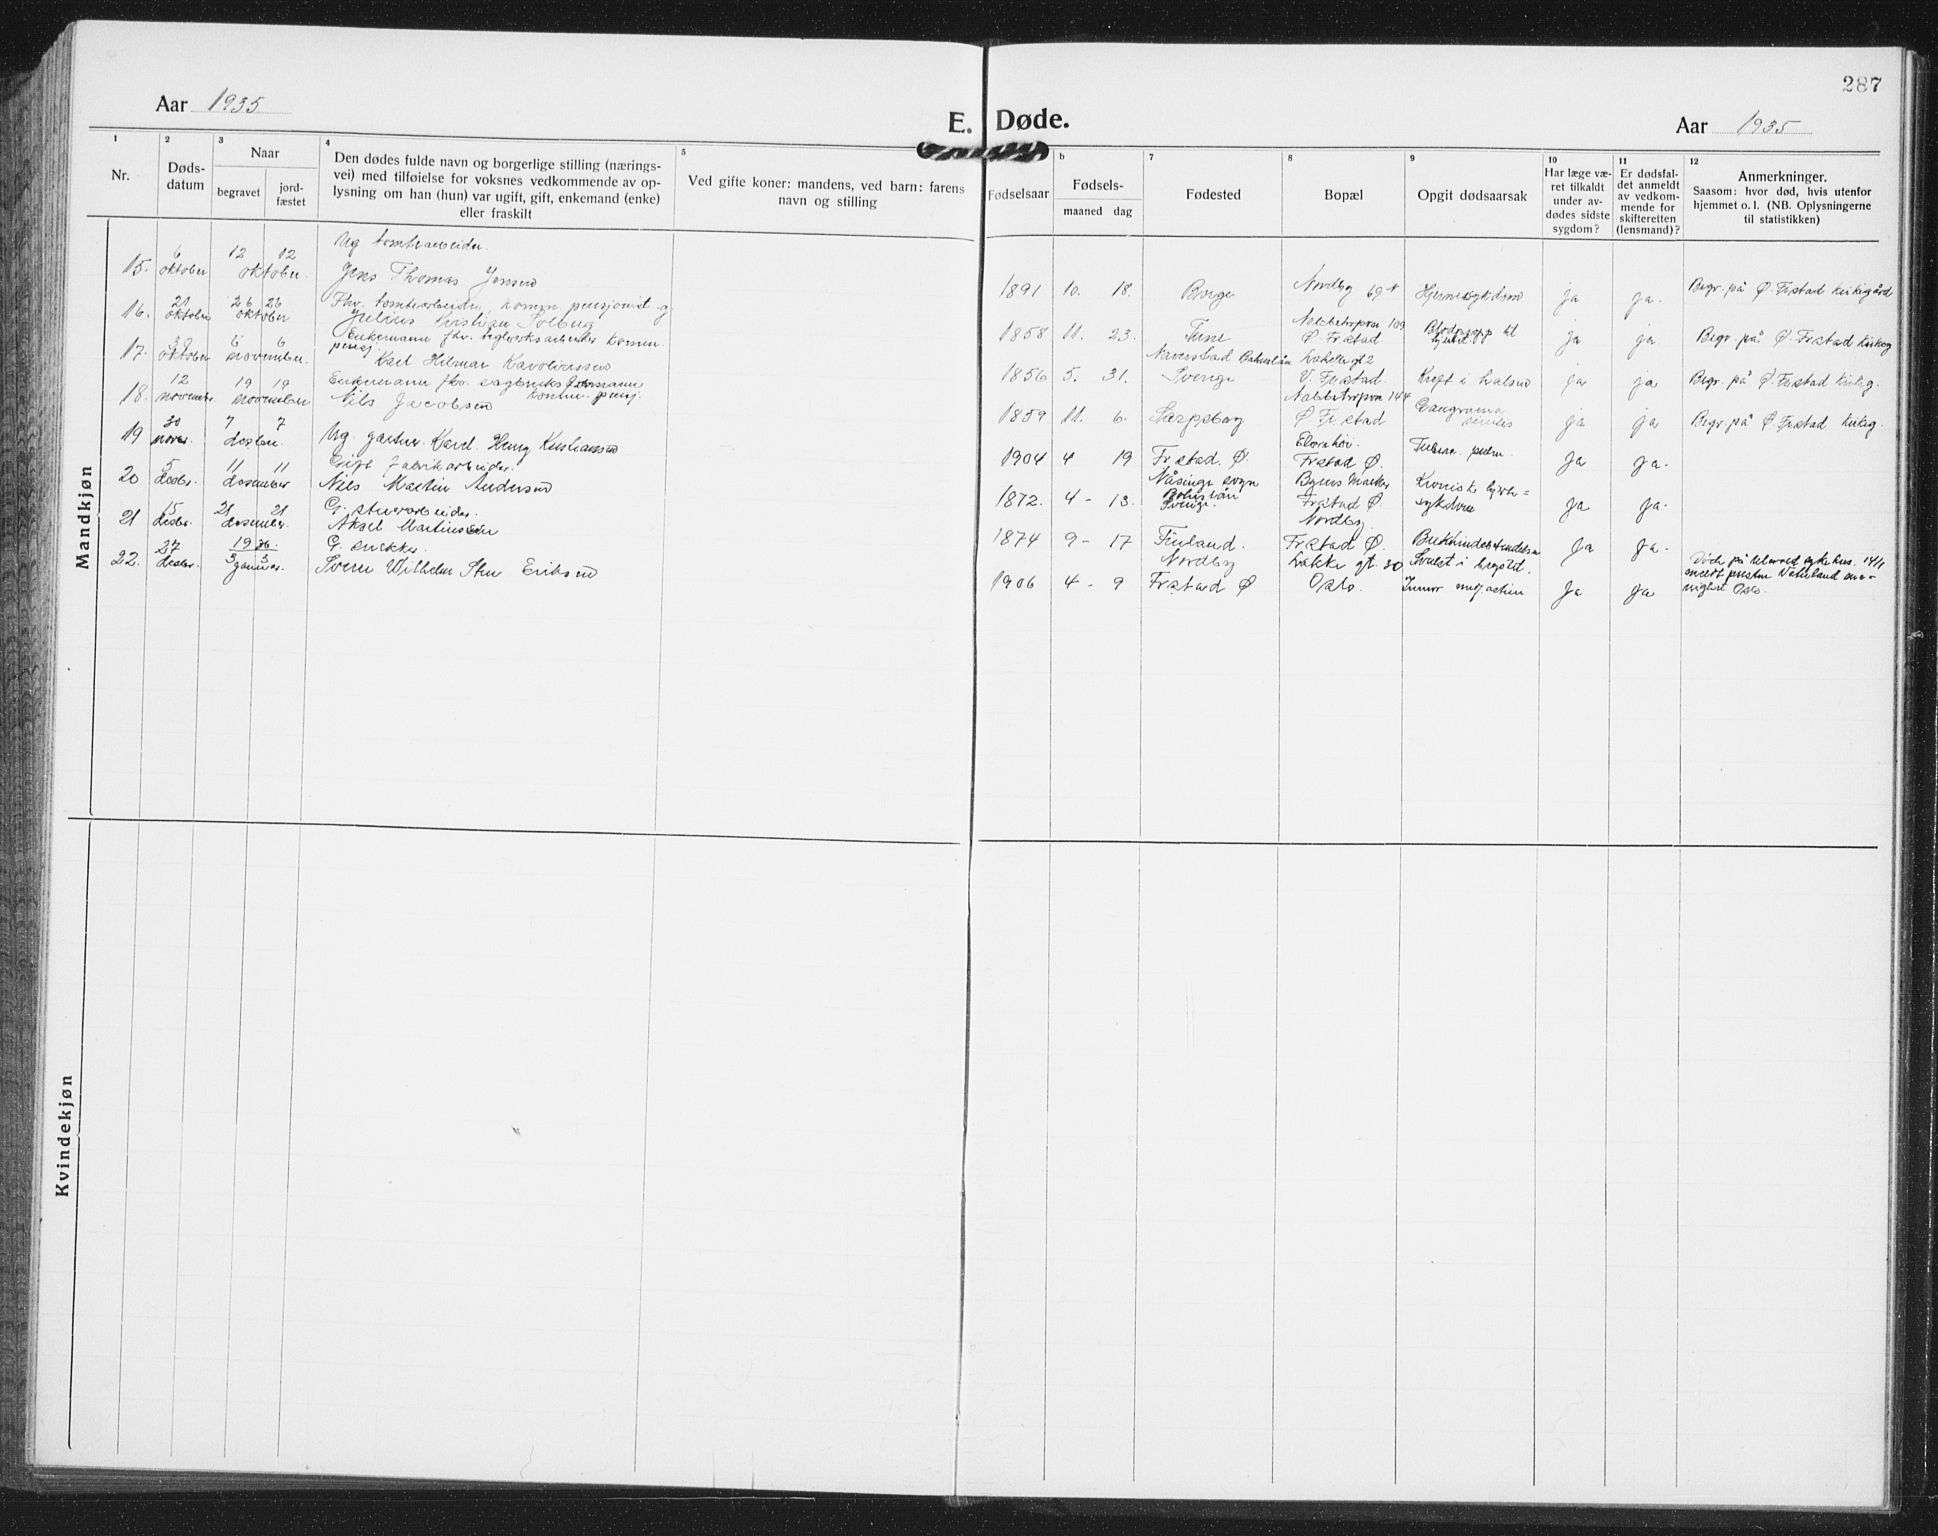 287
Aar 1935
E. Døde.
Aar 1935
1
Nr.
2
Døds-
datum
3
Naar
begravet
jord-
fæstet
4
Den dødes fulde navn og borgerlige stilling (nærings-
vei) med tilføielse for voksnes vedkommende av op-
lysning om han (hun) var ugift, gift, enkemand (enke)
eller fraskilt
5
Ved gifte koner: mandens, ved barn: farens
navn og stilling
Fødselsaar
b
Fødsels-
maaned dag
7
Fødested
8
Bopæl
9
Opgit dødsaarsak
10
Har læge væ-
ret tilkaldt
under av-
dødes sidste
sygdom?
11
Er dødsfal-
det anmeldt
av vedkom-
mende for
skifteretten
(lensmand)?
12
Anmerkninger.
Saasom: hvor død, hvis utenfor
hjemmet o. l. (NB. Oplysningerne
til statistikken)
Mandkjøn
15.
6
oktober
12 12
oktober
Ug tomtearbeider.
Jens Thomas Jensen
1891 10. 18. Borge
Nordby 69
ja ja.
Begr. på Ø. Frstad kirkegård
16.
21
oktober
26 26
oktober
Fhv. tomtearbeider, komm. pensjonist g
Julius Kristian Solberg
1858 11. 23. Tune
109
Ø Frstad
ja ja
Begr. på Ø. Frstad kirkeg
17.
oktober
6 6
november.
Enkemann fhv. teglverksarbeider komm.
pensj.
Karl Hilmar Karolinussen
1856 5. 31.
Sverige
V. Frstad
Kreft i halsen
ja ja
Begr. på Ø. Frstad kirkeg.
18.
12
november
19 19
november
Enkemann fhv. sagbruks formann
komm. pensj.
Nils Jacobsen
1859 11. 6. Sarpsborg
144
Ø Frstad
Gangraena
senilis
ja ja
Begr. på Ø Frstad kirkeg.
19
30
novbr.
7 7
desbr.
Ug. gartner. Karl Henry Kristiansen
1904 4 19 Frstad. Ø.
Frstad Ø.
Tuberc. pulm.
ja ja.
20
5
desbr.
11 11
desember
Gift fabrikarbeider.
Nils Martin Andersen
1872. 4 - 13.
Nåsinge sogn
Bohuslän
Sverige.
Byens Marker
Frstad Ø.
Kronisk hjerte=
sykdom
ja ja.
21
15
desbr.
21 21
desember.
G. stuearbeider.
Aksel Martinsen
1874 9 - 17 Finland.
Nordby
Frstad Ø.
ja ja.
22.
27
desbr.
1936.
3 3
januar.
G. snekker.
Sven Wilhelm Sten Eriksen
1906 4 - 9
Nordby
Frstad Ø
Løkke gt. 30
Oslo.
Svulst i brystet.
ja ja
Døde på Ullevål sykehus. 14/1
Oslo.
Kvindekjøn